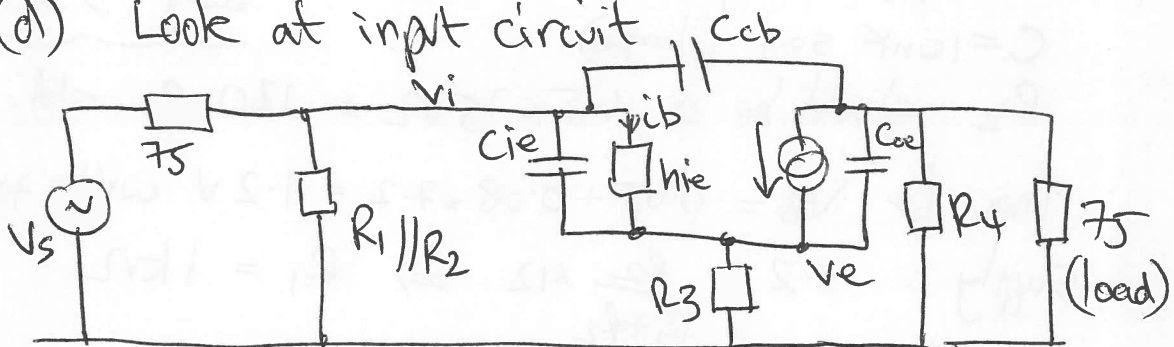 (d) Look at input circuit Ccb
Vi
75
Cie
ib
hie
Coe
Vs
R1//R2
R3
Ve
R4
75
(load)